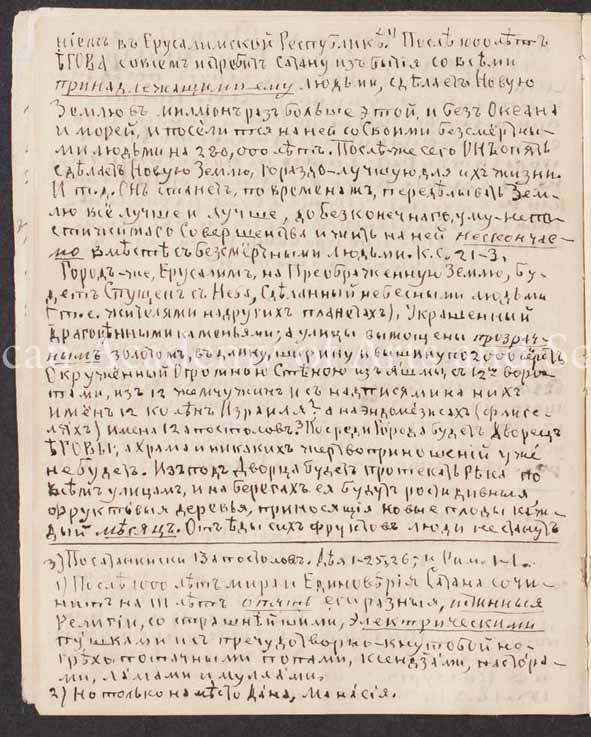 ніемъ въ Ерусалимской Республикѣ.¹⁾ Послѣ 1000 лѣтъ
ѢГОВА совсем истребитъ Сатану изъ бытія со всѣми
принадлежащими ему людьми, сдѣлаетъ Новую
Землю въ милліонъ разъ больше этой, и безъ Океана
и морей, и поселится на ней со Своими безсмертны-
ми людьми на 280,000 лѣтъ. Послѣ же сего ОНЪ опять
сдѣлаетъ Новую Землю, гораздо лучшую для ихъ жизни.
И т.д. ОНЪ станетъ, по временамъ, передѣлывать Зем-
лю всё лучше и лучше, до безконечнаго, уму непо-
стижимаго Совершенства и жить на ней нескончае-
мо вмѣстѣ съ безсмертными людьми. К.С. 21-3.
Городъ же, Ерусалимъ, на Преображенную Землю, бу-
детъ Спущенъ съ Неба, Сдѣланный небесными людьми
(т.е. жителями на другихъ планетахъ), Украшенный
драгоцѣнными каменьями; а улицы вымощены прозрач-
нымъ золотомъ, въ длину, ширину и вышину по 2000 верстъ
Окруженный Огромною Стѣною изъ Яшмы, съ 12ю воро-
тами, изъ 12 жемчужинъ и съ надписями на нихъ
имёнъ 12 колѣнъ Израиля²⁾ а на
имена 12 апостоловъ.³⁾ Посреди Города будетъ Дворецъ
ѢГОВЫ; а храма и никакихъ жертвоприношеній уже
не будетъ. Изъ подъ Дворца будетъ протекать Рѣка по
всѣмъ улицамъ, и на берегахъ ея будутъ рости дивныя
фруктовыя деревья, приносящія новые плоды каж-
дый мѣсяцъ. Отъ ѣды сихъ фруктовъ люди не станутъ
3) 13 апостоловъ. Дѣя 1-25,26; и Рим. 1-1.
1) Послѣ 1000 лѣтъ мира и Единовѣрія Сатана сочи-
нитъ на III лѣтъ опять разныя,
Религіи, со страшнѣйшими, Электрическими
пушками и съ
попами, ксендзами, пастора-
ми, ламами и муллами.
2) Но только на мѣсто Дана, Манасія.